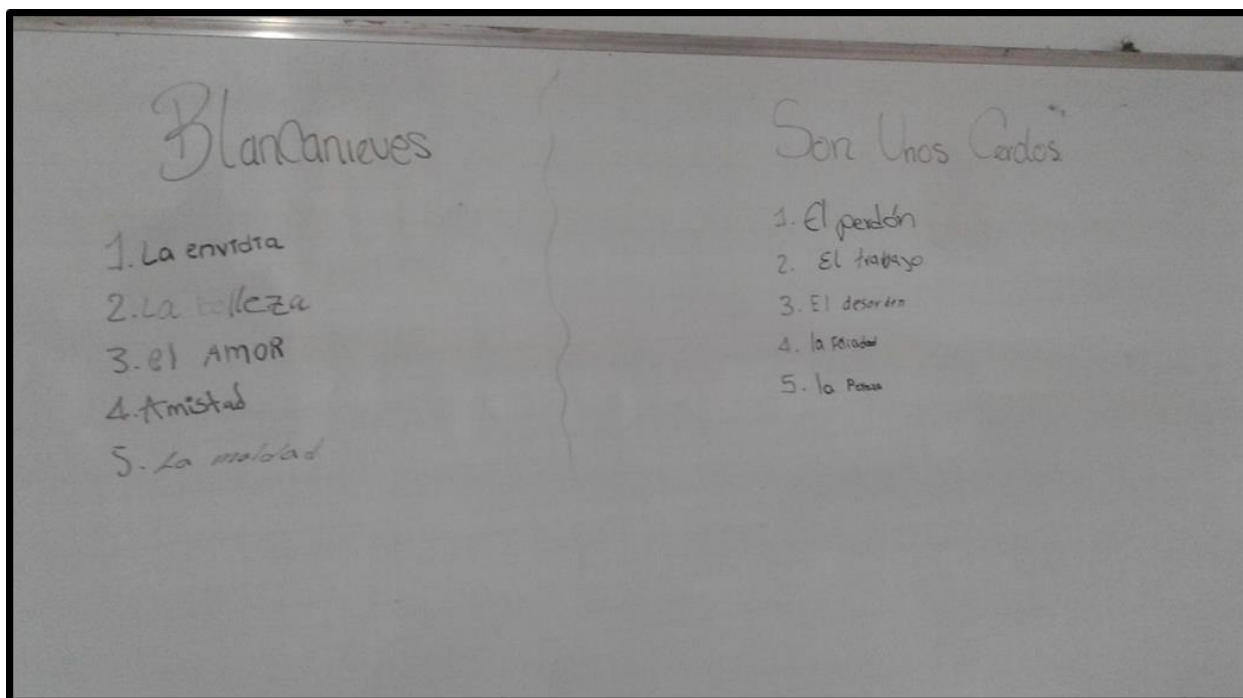 Blancanieves
1. La envidia
2. La belleza
3. el AMOR
4. Amistad
5. La maldad
Son Unos Cerdos"
1. El perdón
2. El trabajo
3. El desorden
4. la
5. la